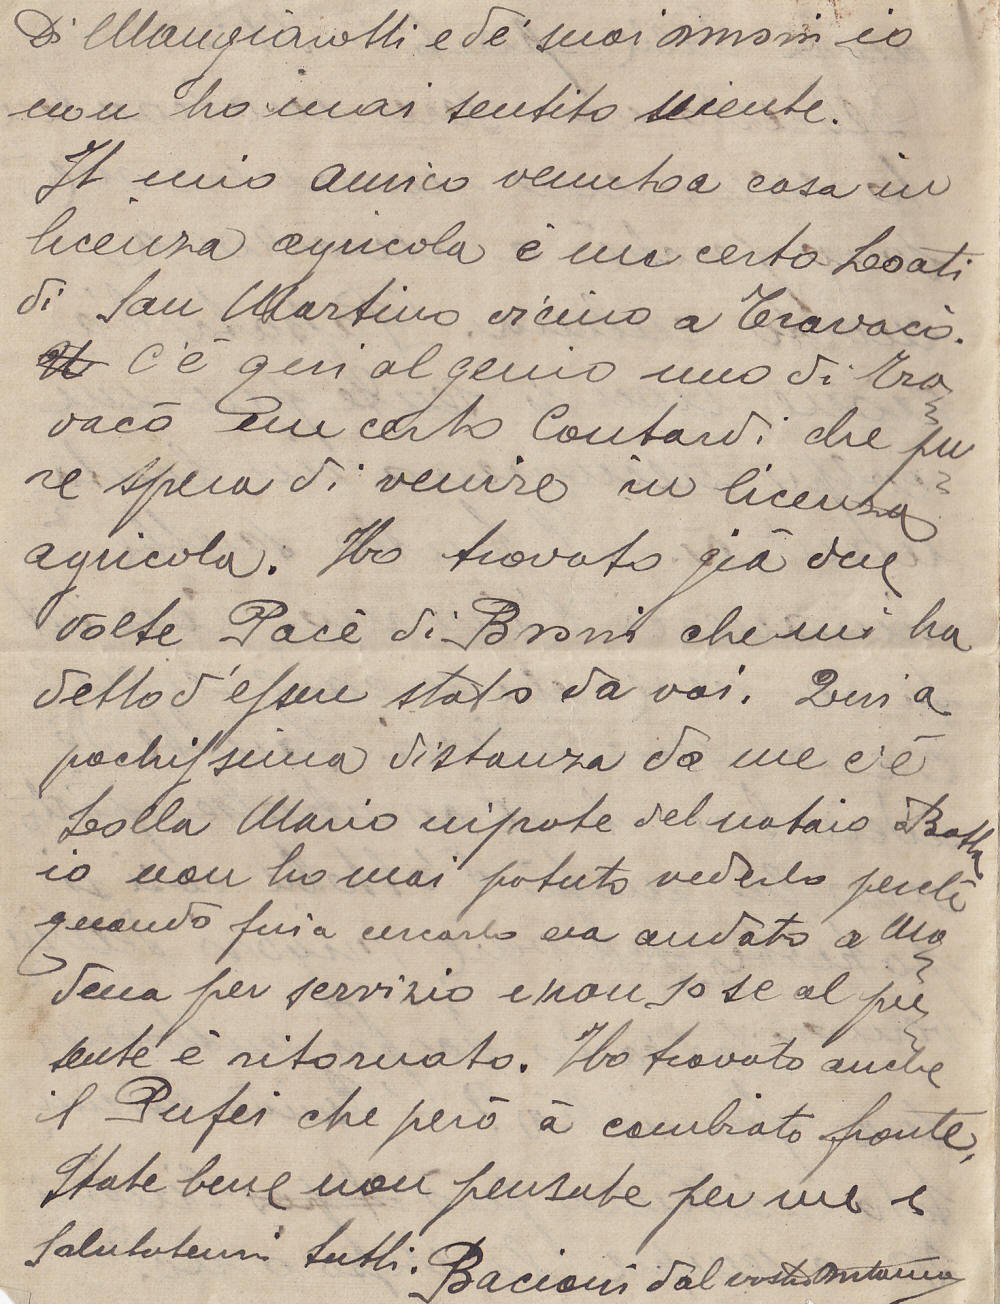 Di Mangiarotti e de' suoi omoni io
non ho mai sentito niente.
Il mio amico venuto a casa in
licenza agricola è un certo Loati
di San Martino vicino a Travacò.
C'è qui al genio uno di Tra
vacò un certo Contardi che pu
re spera di venire in licenza
agricola. Ho trovato già due
volte Pacè di Broni che mi ha
detto d'essere stato da voi. Qui a
pochissima distanza da me c'è
Lolla Mario nipote del notaio Botta
io non ho mai potuto vederlo perchè
quando fui a cercarlo era andato a Mo
dena per servizio e non so se al pre
sente è ritornato. Ho trovato anche
il Pufei che però à cambiato fronte,
State bene non pensate per me e
salutatemi tutti. Bacioni dal vostro Antonio